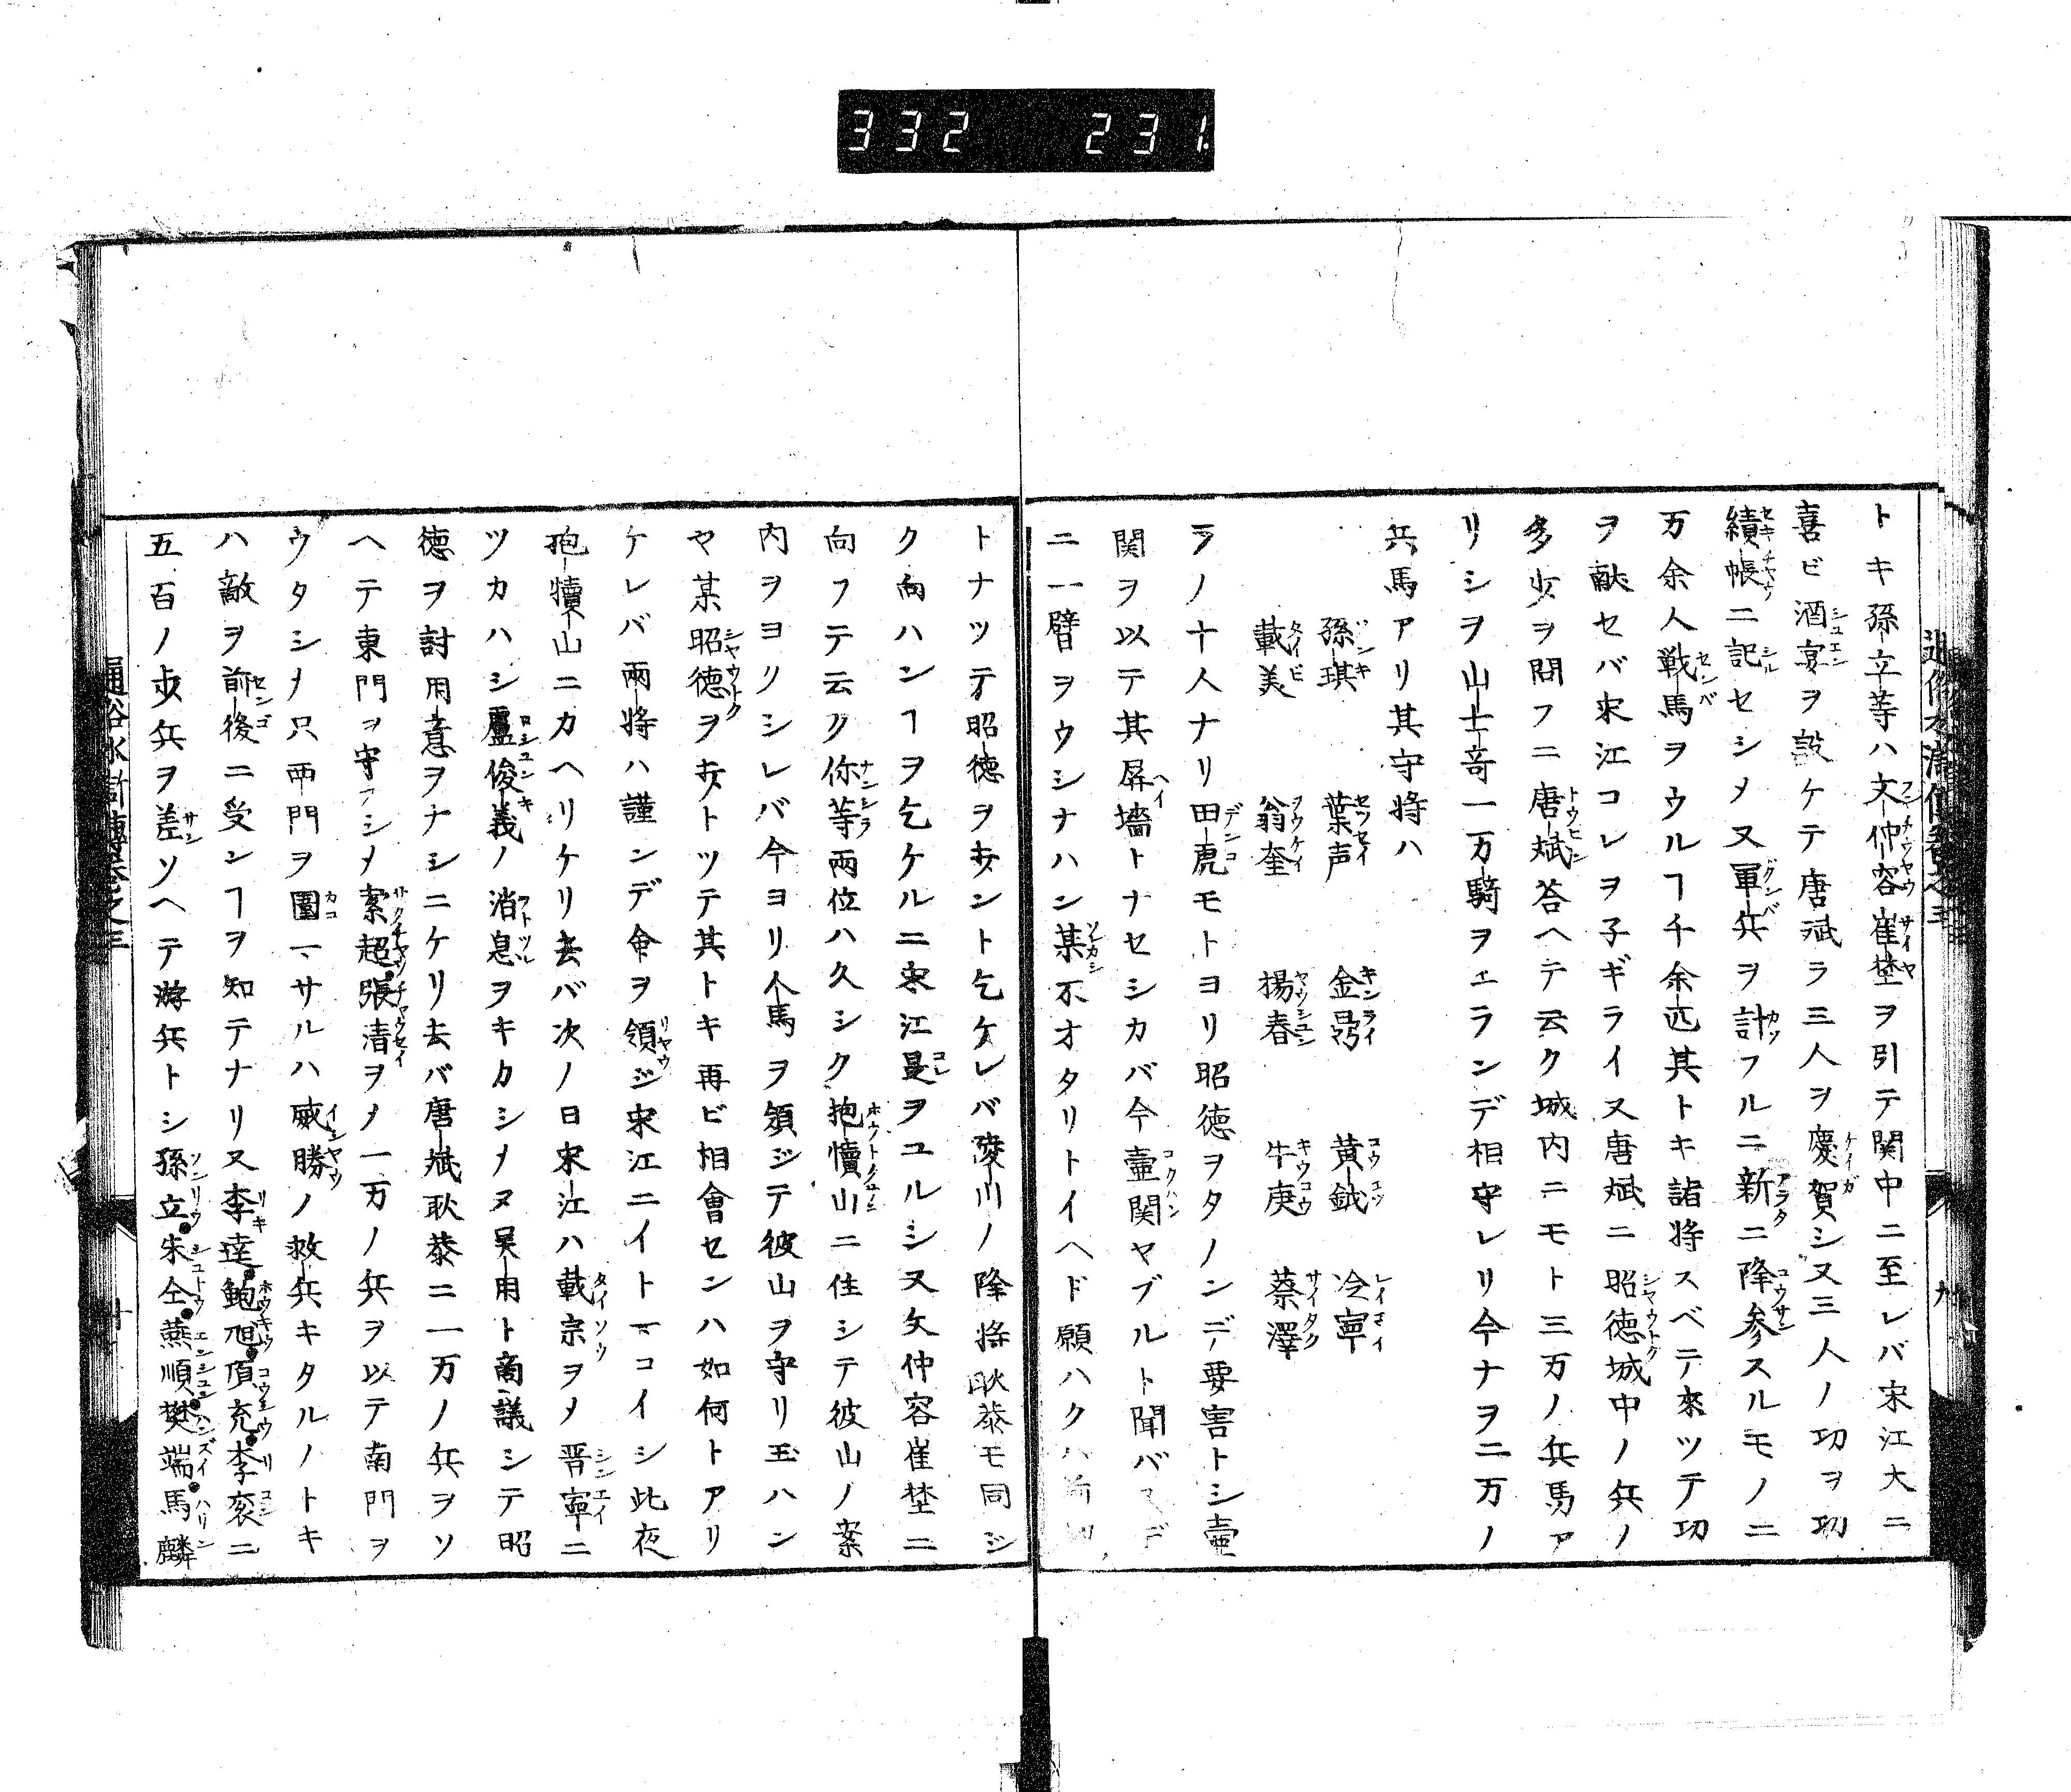 332 231
トキ孫立等ハ文仲容崔埜ヲ引テ関中ニ至レバ宋江大ニ
喜ビ酒宴ヲ設ケテ唐斌ラ三人ヲ慶賀シ又三人ノ功ヲ功
績帳ニ記セシメ又軍兵ヲ計フルニ新ニ降参スルモノ二
万余人戦馬ヲウルヿ千余匹其トキ諸将スベテ來ツテ功
ヲ献セバ宋江コレヲ子ギライ又唐斌ニ昭徳城中ノ兵ノ
多少ヲ問フニ唐斌荅ヘテ云ク城内ニモト三万ノ兵馬ア
リシヲ山士竒一万騎ヲエランデ相守レリ今ナヲ二万ノ
兵馬アリ其守将ハ
孫琪 葉声 金昂 黄鉞 冷寧
戴美 翁奎 揚春 牛庚 蔡澤
ラノ十人ナリ田虎モトヨリ昭徳ヲタノンデ要害トシ壷
関ヲ以テ其屏墻トナセシカバ今壷関ヤブルト聞バ
ニ一臂ヲウシナハン某不才タリトイヘド願ハクハ前
トナツテ昭徳ヲ攻ント乞ケレバ陵川ノ降将耿恭モ同ジ
ク向ハンヿヲ乞ケルニ宋江是ヲユルシ又文仲容崔埜ニ
向フテ云ク你等兩位ハ久シク抱犢山ニ住シテ彼山ノ案
内ヲヨリシレバ今ヨリ人馬ヲ領ジテ彼山ヲ守リ玉ハン
ヤ某昭徳ヲ攻トツテ其トキ再ビ相會センハ如何トアリ
ケレバ兩将ハ謹ンデ命ヲ領ジ宋江ニイトマコイシ此夜
抱犢山ニカヘリケリ去バ次ノ日宋江ハ戴宗ヲメ晋寧ニ
ツカハシ盧俊義ノ消息ヲキカシメヌ呉用ト商議シテ昭
徳ヲ討用意ヲナシニケリ去バ唐斌耿恭ニ一万ノ兵ヲソ
ヘテ東門ヲ守ラシメ索超張清ヲメ一万ノ兵ヲ以テ南門ヲ
ウタシメ只西門ヲ圍マサルハ威勝ノ救兵キタルノトキ
ハ敵ヲ前後ニ受ンヿヲ知テナリ又李逵鮑旭項充李袞ニ
五百ノ歩兵ヲ差ソヘテ游兵トシ孫立朱仝燕順樊端馬麟
通俗水滸傳巻之三